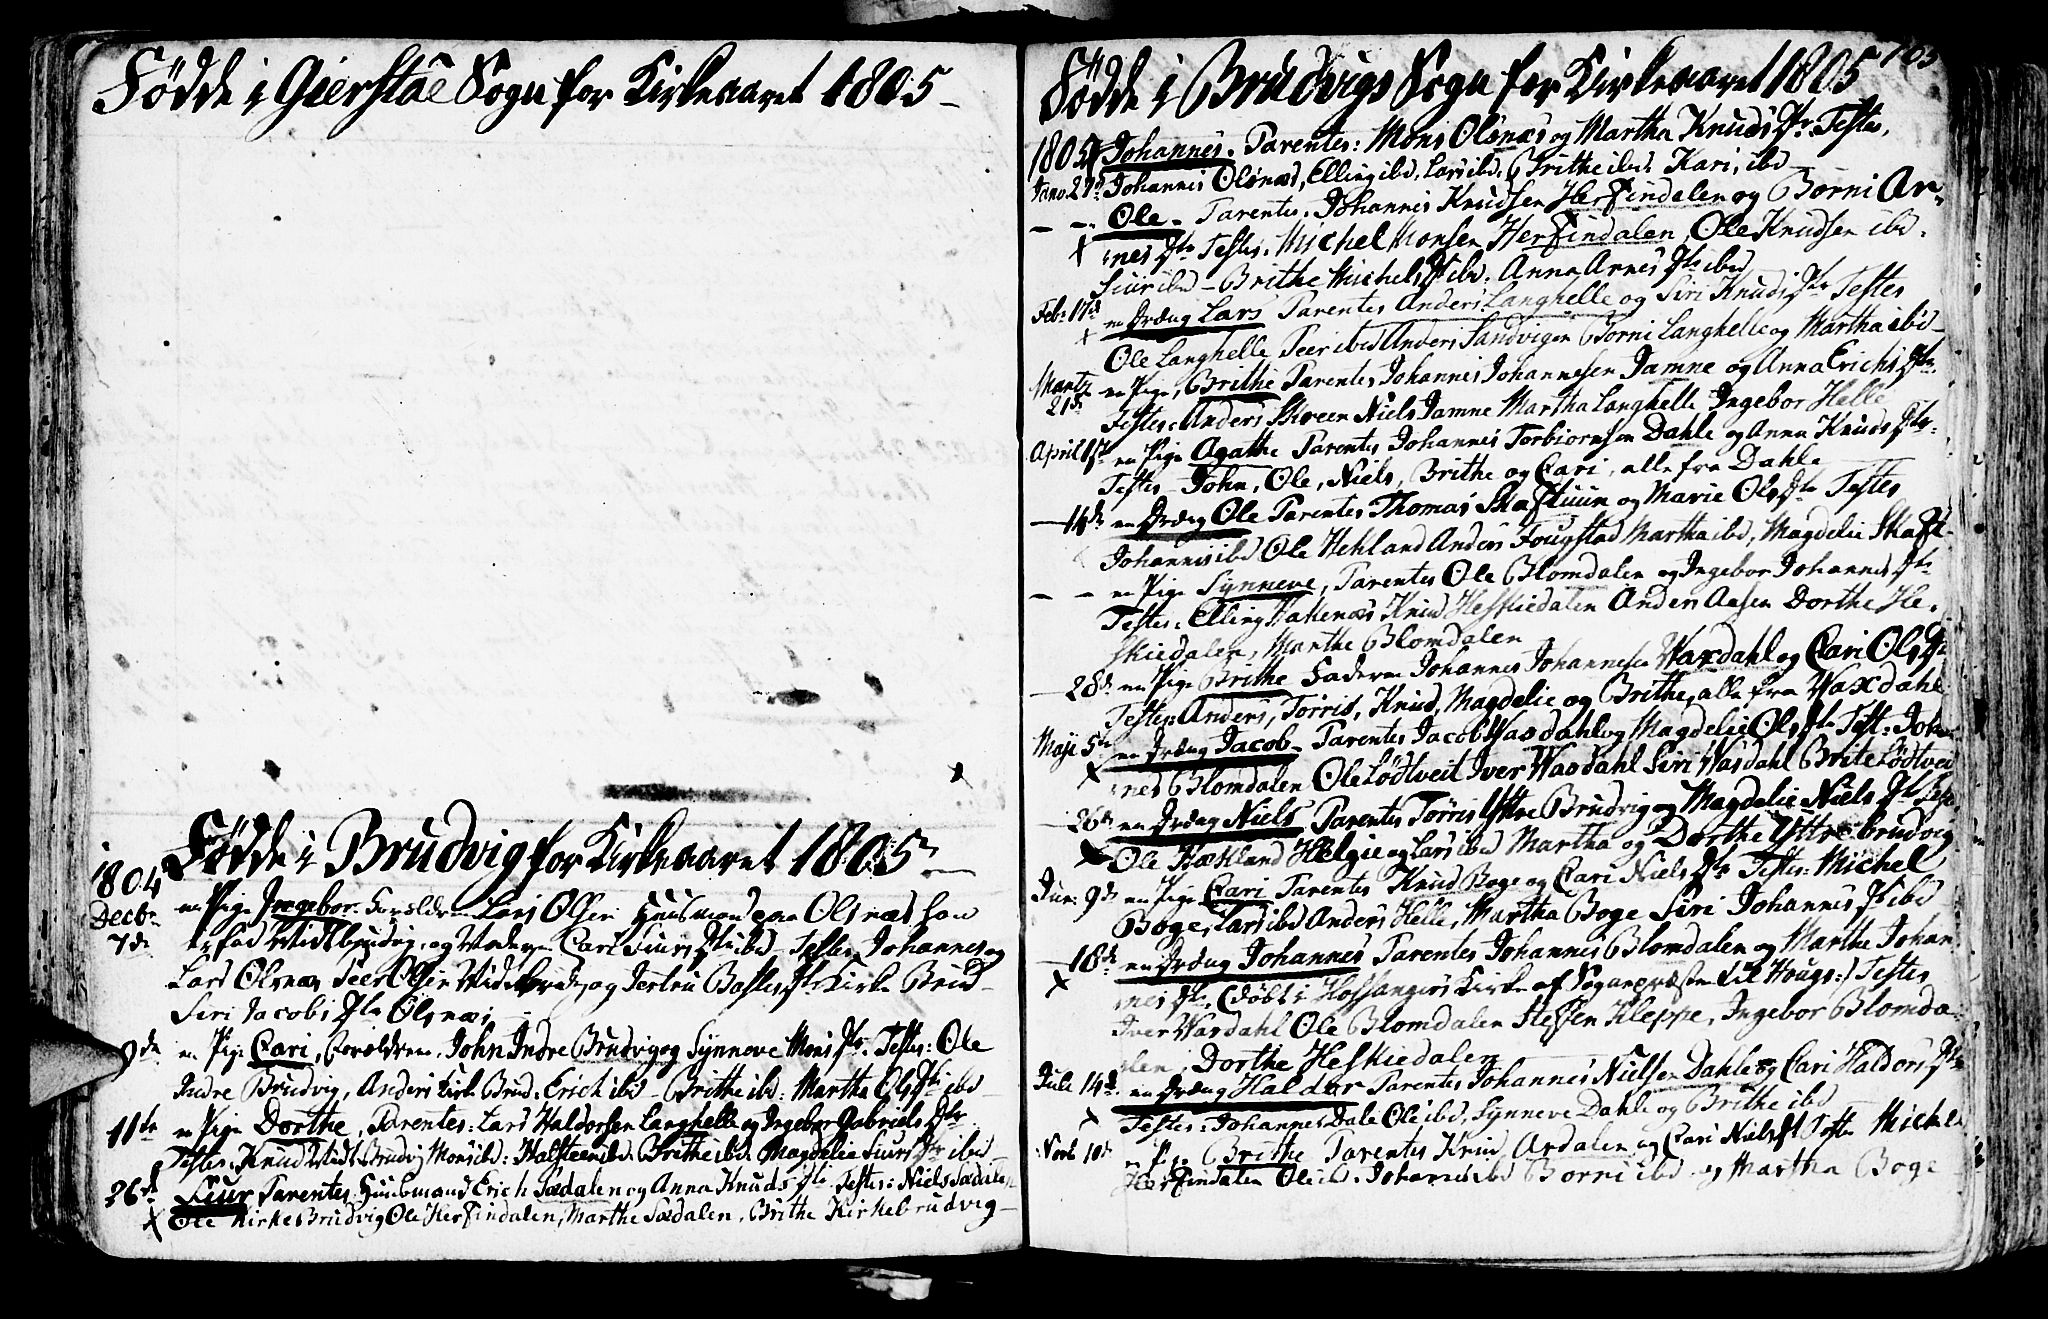 Födde i Gierstäe Sogn for Kirkeaaret 1805
Födde i Brudvig for Kirkeaaret 1805
1804
Decbr
7de
en Pige Ingebor. Forældren Lars Olsen Huusmand paa Olsnæs
Midtbrudvig, og Moderen Cari Siurs Dtr ibd, Testes Johannes og
Lars Olsnæs Peer Olsen Midtbrud, og Jertru Kirke Brud-
Siri Jacobs Dtr Olsnæs
9de en Pige Cari, Forældrene, John Indre Brudvig og Synneve Mons Dtr. Testes: Ole
Indre Brudvig, Anders Kirk Brud. Erich ibd - Brithe ibd: Martha Ols Dtr ibd
11te en Pige Dorthe, Parentes: Lars Haldorsen Langhelle og Ingebor Gabriels Dtr
Testes. Knud Midt Brudvig Mons ibd: Halsteen ibd. Brithe ibd. Magdelie Siurs Dtr ibd
26de Siur Parentes, Huusmand Erich Sædalen og Anna Knuds Dtr. Testes: Niels Sædalen
x Ole Kirke Brudvig Ole Herfindalen, Marthe Sædalen, Brithe Kirkebrudvig
105
Födde i Brudvigs Sogn for Kirkeaaret 1805
1805 Johannes. Parentes: Mons Olsnæs og Martha Knuds Dtr. Testes,
Johannes Olsnæs, Elling ibd, Lars ibd, Brithe ibd. Kari, ibd
— — Ole. Parentes. Johannes Knudsen Herfindalen og Borni Ar-
x nes Dtr Testes. Michel Monsen Herfindalen, Ole Knudsen ibd.
Siur ibd - Brithe Michels Dtr ibd. Anna Arnes Dtr ibd
Feb: 17de en Dræng Lars Parentes Anders Langhelle og Siri Knuds Dtr Testes
x Ole Langhelle Peer ibd Anders Sandvigen Borni Langhelle og Martha ibd
Martz
21de en Pige, Brithe Parentes Johannes Johannesen Jamne og Anna Erichs Dtr.
Testes: Anders Skreen Niels Jamne Martha Langhelle Ingebor Helle
April en Pige Agathe Parentes Johannes Torbiornsen Dahle og Anna Knuds Dtr.
Testes John, Ole, Niels, Brithe og Cari, alle fra Dahle
— 14de en Dræng Ole Parentes Thomas Skaftuun og Marie Ols Dtr Testes
Johannes ibd Ole Hehland Anders Fougstad Martha ibd, Magdelie Skaft-
— — en Pige Synneve, Parentes Ole Blomdalen og Ingebor Johannes Dtr
Testes. Elling Hakenæs Knud Heskiedalen Anders Aasen Dorthe He-
skiedalen, Marthe Blomdalen
— 28de en Pige Brithe Faderen Johannes Johannesen Waxdahl og Cari Ols Dtr
Testes: Anders, Torris, Knud, Magdelie og Brithe, alle fra Waxdahl
Maji 5te en Dræng Jacob. Parentes Jacob Waxdahl og Magdelie Ols Dtr Test: Johan-
x nes Blomdalen Ole Lödtveit Iver Waxdahl Siri Waxdahl Brite Lödtveit
— 26de en Dræng Niels Parentes Törris Yttre Brudvig og Magdelie Niels Dtr Testes
Ole Hækland Helgie og Lars ibd Martha og Dorthe Yttrebrudvig
Jun: 9de en Pige Cari Parentes Knud Boge og Cari Niels Dtr Testes: Michel
Boge, Lars ibd Anders Helle, Martha Boge Siri Johannes Dtr ibd
— 18de en Dræng Johannes Parentes Johannes Blomdalen og Marthe Johan-
x nes Dtr, (Döbt i Hossangers Kirke af Sognepræsten til Hougs:) Testes
Iver Waxdahl Ole Blomdalen Steffen Kleppe, Ingebor Blomda-
len, Dorthe Heskiedalen
Juli 14de en Dræng Haldor Parentes Johannes Nielsen Dahle og Cari Haldors Dtr
x Testes: Johannes Dale Ole ibd, Synneve Dahle og Brithe ibd
Novb 10de en Pige Brithe Parentes Knud Ardalen og Cari Niels Dtr Testes Michel
Herfindalen Ole ibd. Johannes ibd Borni ibd og Martha Boge